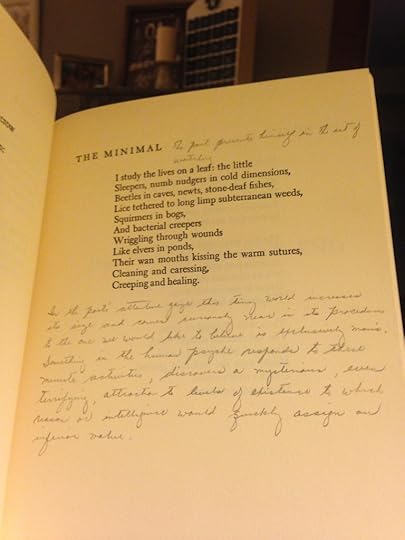 THE MINIMAL The poet presents himself in the act of
watching
I study the lives on a leaf: the little
Sleepers, numb nudgers in cold dimensions,
Beetles in caves, newts, stone-deaf fishes,
Lice tethered to long limp subterranean weeds,
Squirmers in bogs,
And bacterial creepers
Wriggling through wounds
Like elvers in ponds,
Their wan mouths kissing the warm sutures,
Cleaning and caressing,
Creeping and healing.
In the poet's attentive gaze this tiny world increases
its size and comes curiously near in its procedures
to the one we would like to believe is exclusively man's.
Something in the human psyche responds to these
minute activities, discovers a mysterious, even
terrifying, attraction to levels of existence to which
reason or intelligence would quickly assign an
inferior value.